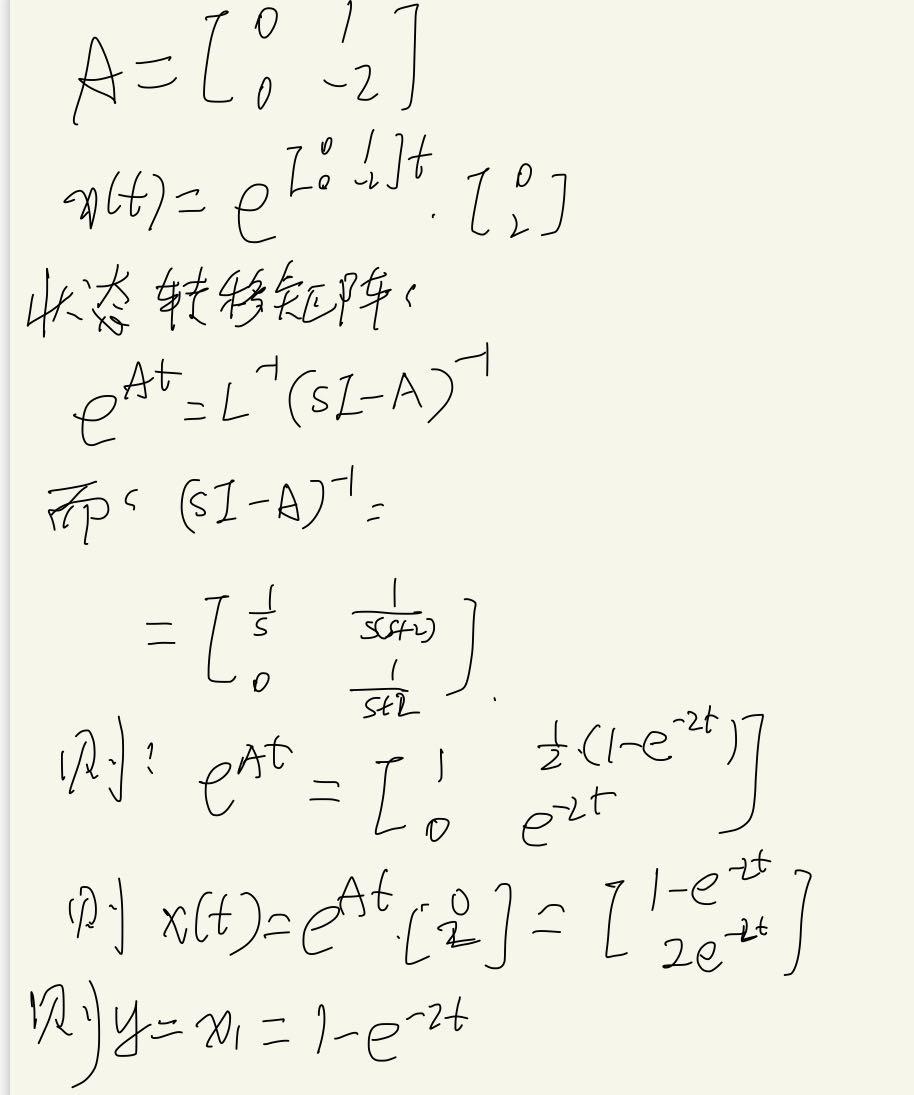 A = [0 1; 0 -2]
x(t) = e^{[0 1; 0 -2]t} · [0; 2]
状态转移矩阵:
e^{At} = L^{-1}(sI-A)^{-1}
而: (sI-A)^{-1} =
= [1/s 1/(s(s+2)); 0 1/(s+2)].
则: e^{At} = [1 1/2·(1-e^{-2t}); 0 e^{-2t}]
则 x(t) = e^{At}·[0; 2] = [1-e^{-2t}; 2e^{-2t}]
则 y = x₁ = 1-e^{-2t}